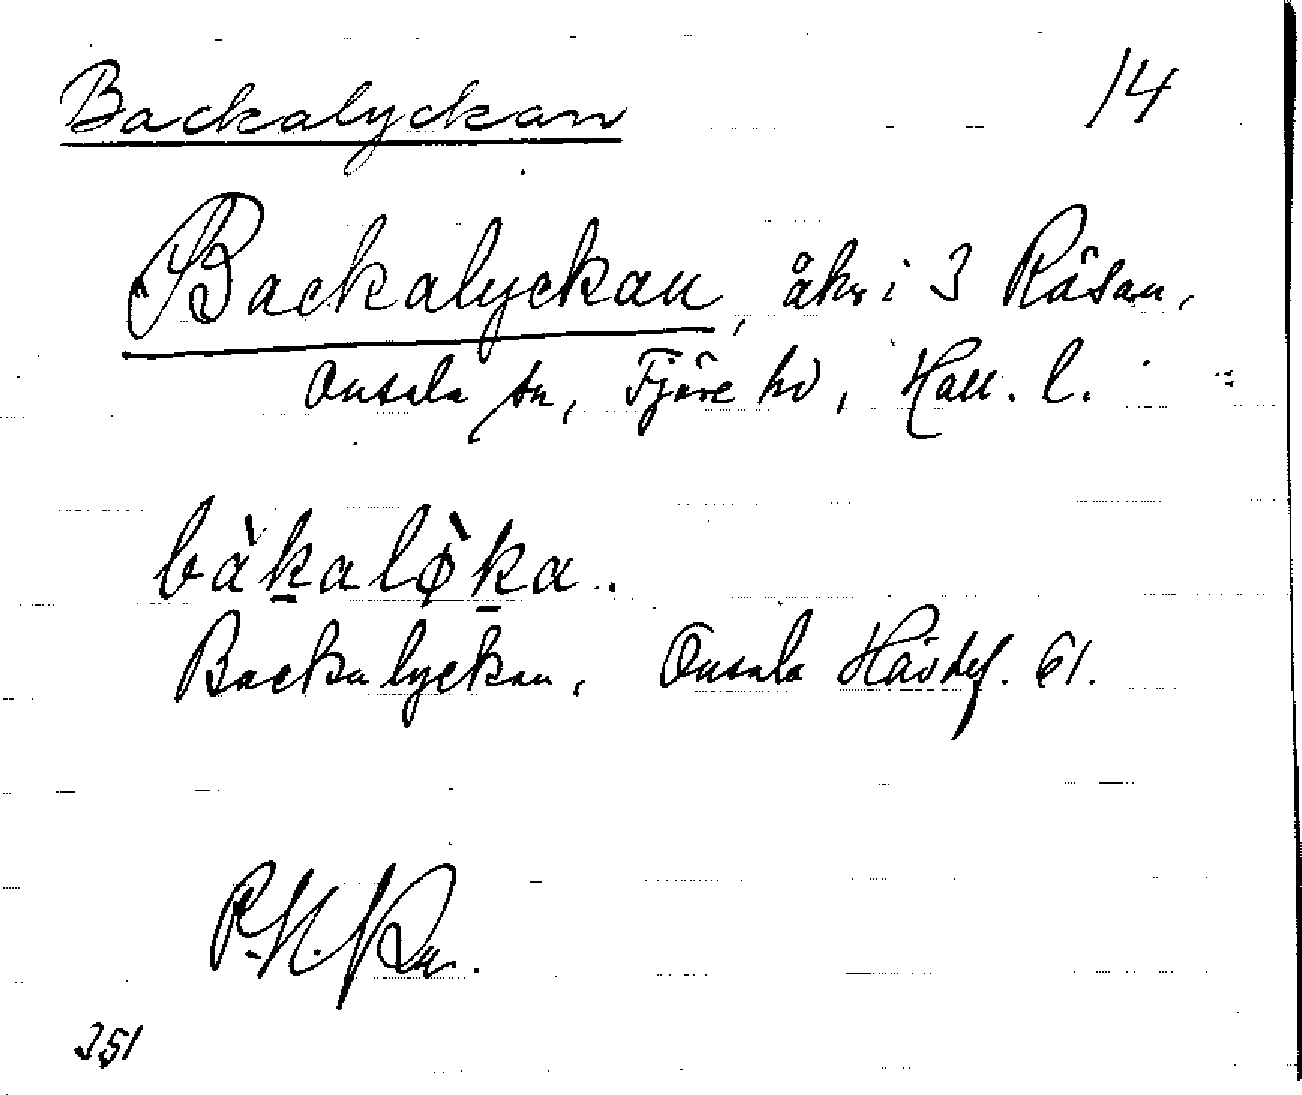 Backalyckan 14
Backalyckan, åker i 3 Råsan,
Onsala sn, Fjäre hd, Hall. l.
bàk̲alø̀k̲a.
Backalyckan, Onsala Hävdef. 61.
351